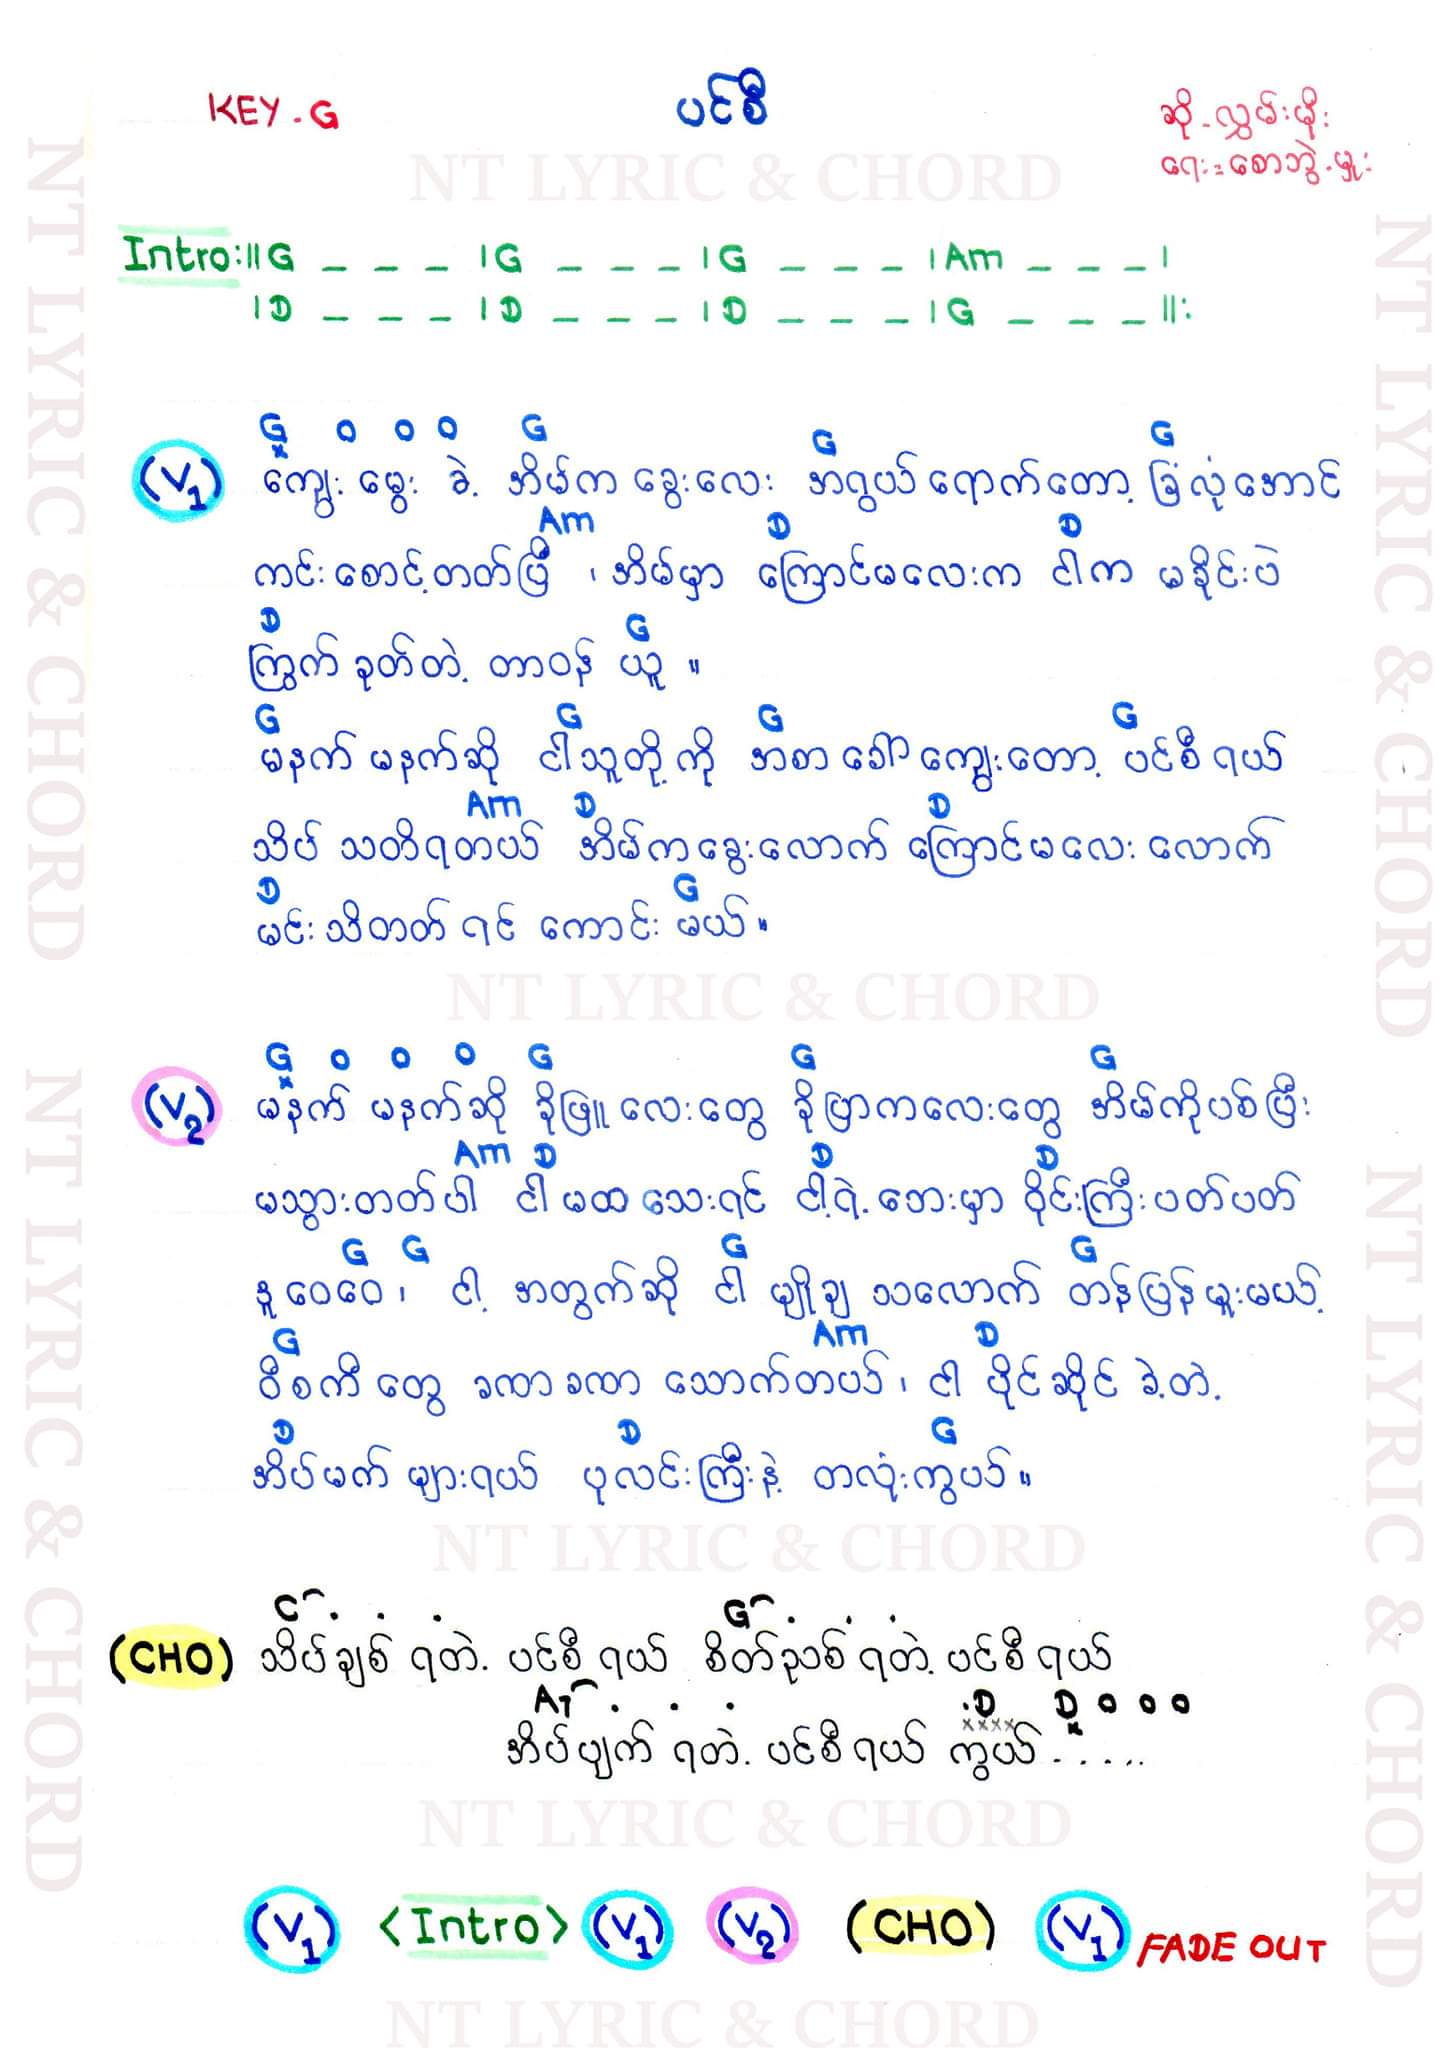 KEY - G
ပင်စီ
ဆို - လွှမ်းမိုး
ရေး = စောဘွဲ့မှူး
NT LYRIC & CHORD
Intro :|| G _ _ _ | G _ _ _ | G _ _ _ | Am _ _ _ |
| D _ _ _ | D _ _ _ | D _ _ _ | G _ _ _ ||:
G o o o G G G
(V1) ကျွေး မွေး ခဲ့ အိမ်က ခွေးလေး အရွယ် ရောက်တော့ ခြံလုံအောင်
Am D D
ကင်း စောင့် တတ်ပြီ ၊ အိမ်မှာ ကြောင်မလေးက ငါက မခိုင်းပဲ
D G
ကြွက် ခုတ်တဲ့ တာဝန် ယူ ။
G G G G
မနက် မနက်ဆို ငါသူတို့ကို အစာ ခေါ်ကျွေးတော့ ပင်စီ ရယ်
Am D D
သိပ် သတိရတယ် အိမ်ကခွေးလောက် ကြောင်မလေး လောက်
D G
မင်း သိတတ် ရင် ကောင်း မယ် ။
NT LYRIC & CHORD
G o o o G G G
(V2) မနက် မနက်ဆို ခိုဖြူလေးတွေ ခိုပြာကလေးတွေ အိမ်ကိုပစ်ပြီး
Am D D D
မသွားတတ်ပါ ငါမထ သေးရင် ငါ့ရဲ့ ဘေးမှာ ဝိုင်းကြီးပတ်ပတ်
G G G G
ဒူဝေဝေ ၊ ငါ့ အတွက်ဆို ငါ မျိုချ သလောက် တန်ပြန်မူးမယ့်
G Am D
ဝီစကီ တွေ ခဏခဏ သောက်တယ် ၊ ငါ ပိုင်ဆိုင် ခဲ့တဲ့
D D G
အိပ်မက် များရယ် ပုလင်းကြီးနဲ့ တလုံးကွယ် ။
NT LYRIC & CHORD
C . . . G . . .
(CHO) သိပ်ချစ် ရတဲ့ ပင်စီ ရယ် စိတ်ညစ် ရတဲ့ ပင်စီ ရယ်
A7 . . . . D D o o o
အိပ်ပျက် ရတဲ့ ပင်စီ ရယ် ကွယ် . . . . .
NT LYRIC & CHORD
(V1) <Intro> (V1) (V2) (CHO) (V1) FADE OUT
NT LYRIC & CHORD
NT LYRIC & CHORD NT LYRIC & CHORD
NT LYRIC & CHORD NT LYRIC & CHORD